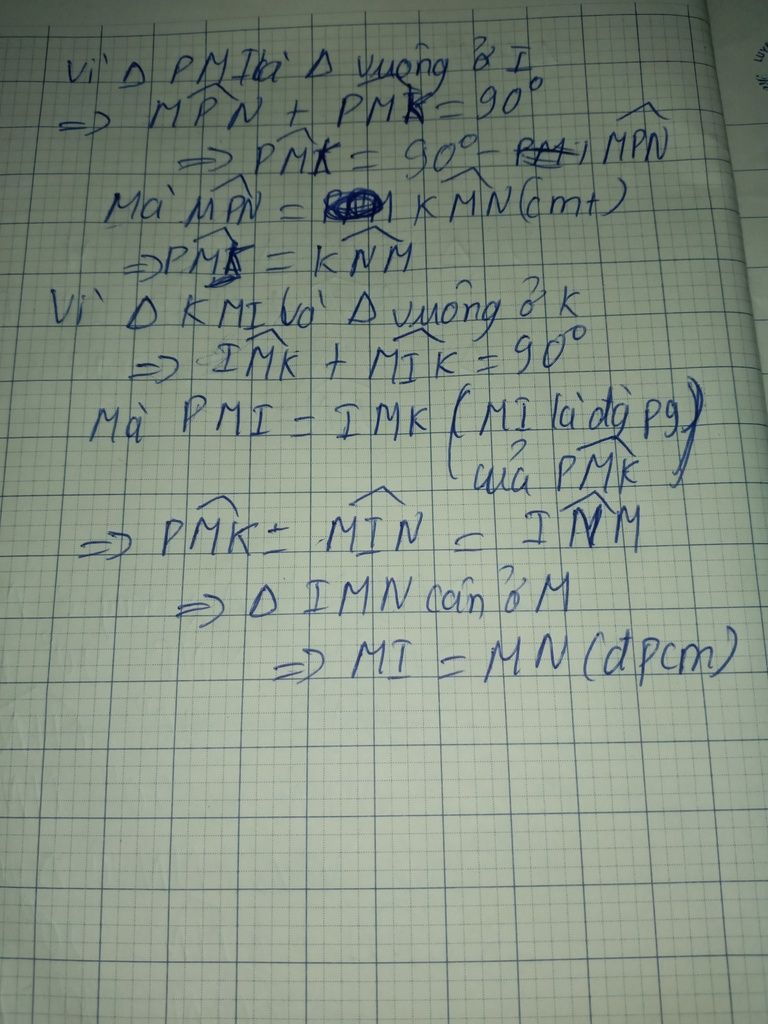 Vì Δ PMI là Δ vuông ở I
=> MPN + PMK = 90°
=> PMK = 90° - MPN
Mà MPN = KMN (cmt)
=> PMK = KNM
Vì Δ KMI là Δ vuông ở K
=> IMK + MIK = 90°
Mà PMI = IMK (MI là đg pg
của PMK)
=> PMK = MIN = INM
=> Δ IMN cân ở M
=> MI = MN (đpcm)